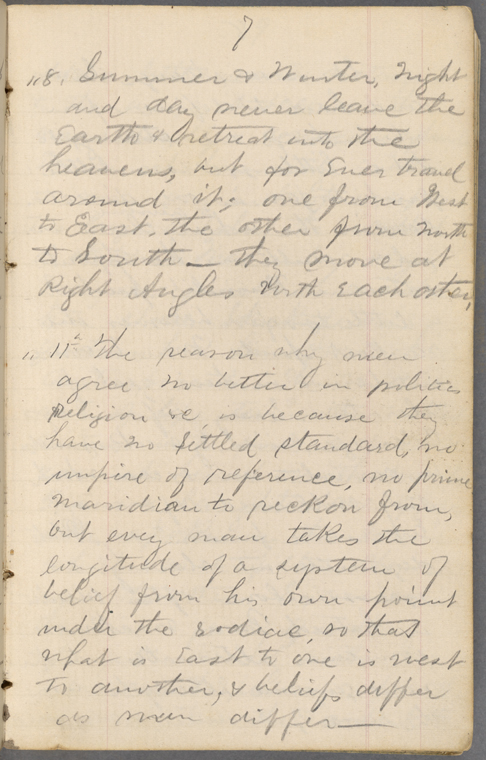 7
"8. Summer & Winter, Night
and day never leave the
Earth & retreat into the
heavens, but for Ever travel
around it; one from West
to East, the other from North
to South — they move at
Right Angles with Each other,
" 11" The reason why men
agree no better in politics
Religion &c, is because they
have no settled standard, no
umpire of reference, no prime
maridian to reckon from,
but every man takes the
longitude of a system of
belief from his own point
under the zodiac, so that
what is East to one is west
to another, & beliefs differ
as men differ —